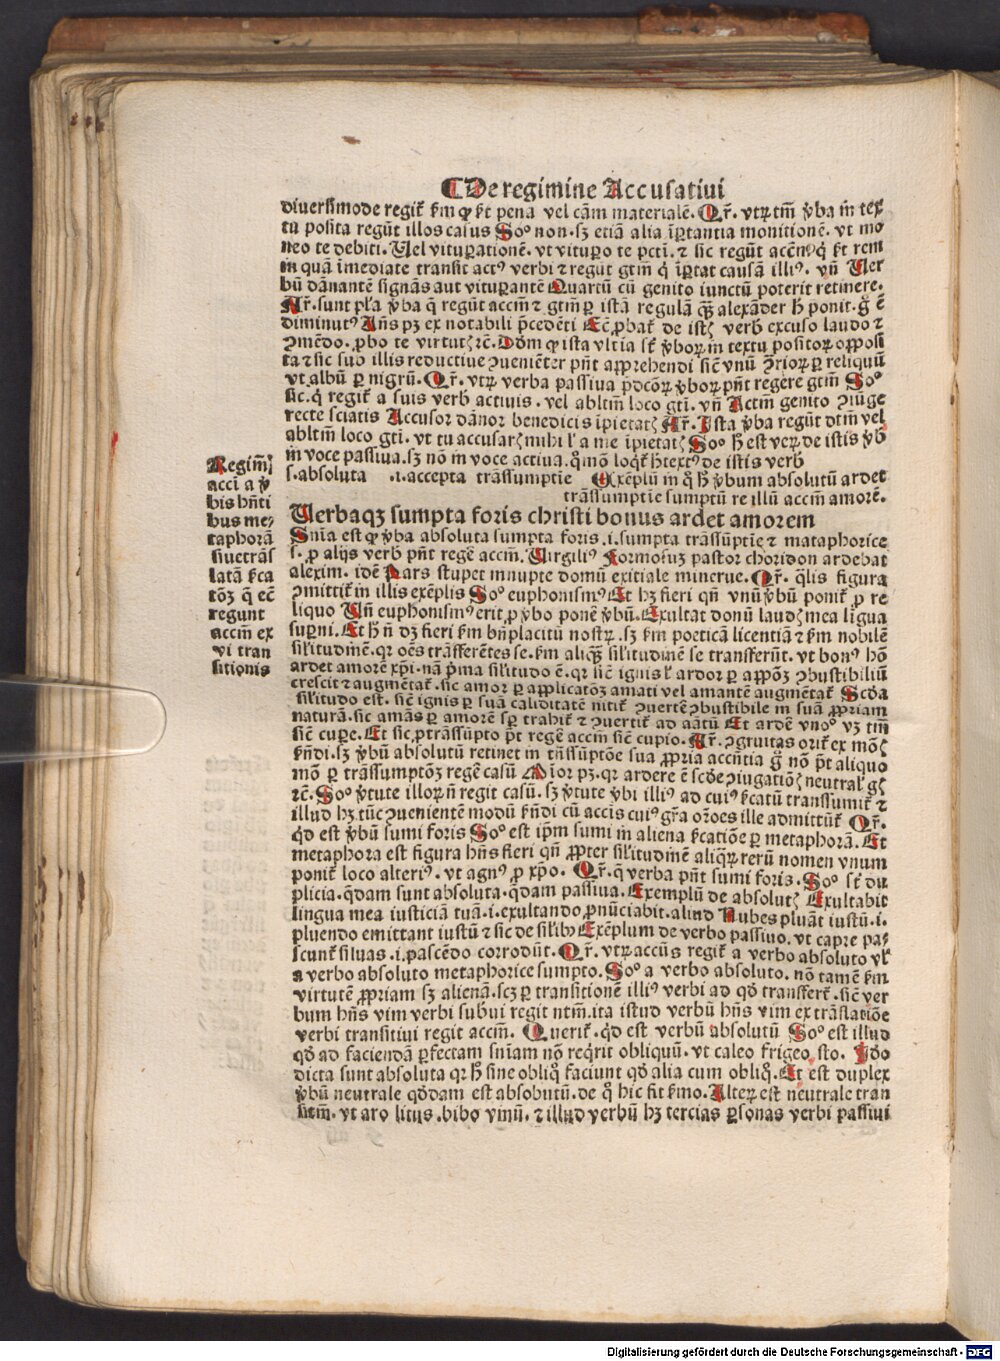 ¶ De regimine Accusatiui
diuersimode regit̄ ẜm ꝙ ẜt pena vel cām materialē. Qr̄. vtꝝ tm̄ ꝟba in tex
tu posita regūt illos casus Soº non. sꝫ etiā alia īꝑtantia monitionē. vt mo
neo te debiti. Uel vituꝑationē. vt vituꝑo te pcti. ⁊ sic regūt
in quā īmediate transit actꝰ verbi ⁊ regūt gtm̄ q̄ īꝑtat causā illiꝰ. vn̄ Uer
bū dānantē signās aut vituꝑantē Quartū cū genito iunctū poterit retinere.
Ar̄. sunt pl̄a ꝟba q̄ regūt accm̄ ⁊ gtm̄ ꝑ istā regulā alexāder ponit. g̊ ē
diminutꝰ Ans pꝫ ex notabili p̄cedēti de verb̄ excuso laudo ⁊
ꝯmēdo. ꝓbo te virtutꝭ ⁊c. Dōm ꝙ ista in textu positoꝝ
ta ⁊ sic suo illis reductiue ꝯueniēter pn̄t apprehendi siē vnū ꝑ reliquū
vt albū ꝑ nigrū. Qr̄. vtꝝ verba passiua pn̄t regere gtm̄ Soº
sic. q̄ regit̄ a suis verb̄ actiuis. vel abltm̄ loco gti. vn̄ Actm̄ genito ꝯiūge
recte sciatis Accusor dānor benedicis īpietatꝭ Ar̄. Ista ꝟba regūt dtm̄ vel
abltm̄ loco gti. vt tu accusarꝭ mihi l̄ a me īpietatꝭ Soº h̄ est veꝝ de istis ꝟb̄
in voce passiua. sꝫ nō in voce actiua. q̄mō loqt̄ textꝰ de istis verb̄
s. absoluta .i. accepta trāssumptīe Exēplū in q̄ h̄ ꝟbum absolutū ardet
trāssumptie sumptū re illū accm̄ amorē.
Uerbaqꝫ sumpta foris christi bonus ardet amorem
Regim̄
acci a ꝟ
bis hn̄ti
bus me⸗
taphorā
siue trās
latā ẜca
tōꝫ q̄ eē
regunt
accm̄ ex
vi tran
sitionis
Sniā est ꝙ ꝟba absoluta sumpta foris .i. sumpta trāssūptīe ⁊ mataphorice
s. ꝓ alijs verb̄ pn̄t regē accm̄. Uirgiliꝰ Formosuꝫ pastor choridon ardebat
alexim. idē Pars stupet innupte domū exitiale minerue. Qr̄. q̄lis figura
ꝯmittit̄ in illis exēplis Soº euphonismꝰ Et hꝫ fieri qn̄ vnū ꝟbū ponit̄ ꝓ re
liquo Un̄ euphonismꝰ erit ꝓ ꝟbo ponē ꝟbū. Exultat donū laudꝭ mea līgua
suꝑni. Et h̄ n̄ dꝫ fieri ẜm bn̄placitū nostꝝ. sꝫ ẜm poeticā licentiā ⁊ ẜm nobilē
sil̄itudinē. qꝛ oēs trāsferētes se. ẜm aliquā sil̄itudinē se transferūt. vt bonꝰ hō
ardet amorē xp̄i. nā p̄ma sil̄itudo ē. qꝛ siē ignis l̄ ardor ꝑ ꝯbustibiliū
crescit ⁊ augmētat̄. sic amor ꝑ applicatōꝫ amati vel amantē augmētat̄ Scd̄a
sil̄itudo est. siē ignis ꝑ suā caliditatē nitit̄ ꝯuertē ꝯbustibile in suā ꝓpriam
naturā. sic amās ꝑ amorē sꝑ trahit̄ ⁊ ꝯuertit̄ ad amatū Et ardē vnoº vꝫ tm̄
siē cuꝑe. Et sic ꝓ trāssūpto pt̄ regē accm̄ siē cupio. Ar̄. ꝯgruitas orit̄ ex mōꝭ
ẜn̄di. sꝫ ꝟbū absolutū retinet in tn̄ssūptōe sua ꝓpria accn̄tia g̊ nō pt̄ aliquo
mō ꝑ trāssumptōꝫ regē casū Maior pꝫ. qꝛ ardere ē scd̄e ꝯiugatiōꝭ neutral̄ gꝭ
⁊c. Soº ꝟtute illoꝝ n̄ regit casū. sꝫ ꝟtute ꝟbi illiꝰ ad cuiꝰ ẜcatū transsumit̄ ⁊
illud hꝫ tūc ꝯuenientē modū ẜn̄di cū accis cuiꝰ gr̄a ororoes ille admittūt̄ Qr̄.
qd̄ est ꝟbū sumi foris Soº est ip̄m sumi in aliena ẜcatiōe ꝑ metaphorā. Et
metaphora est figura hn̄s fieri qn̄ ꝓpter sil̄itudinē aliq̄ꝝ rerū nomen vnum
ponit̄ loco alteriꝰ. vt agnꝰ ꝓ xp̄o. Qr̄. q̄ verba pn̄t sumi foris. Soº st̄ du
plicia. q̄dam sunt absoluta. q̄dam passiua. Exemplū de absolutꝭ Exultabit
lingua mea iusticiā tuā .i. exultando ꝓnūciabit. aliud Nubes pluāt iustū .i.
pluendo emittant iustū ⁊ sic de sil̄ibꝰ Exēplum de verbo passiuo. vt capre pa⸗
scunt̄ siluas .i. pascēdo corrodūt. Qr̄. vtꝝ accūs regit̄ a verbo absoluto vl̄
a verbo absoluto metaphorice sumpto. Soº a verbo absoluto. nō tamē ẜm
virtutē ꝓpriam sꝫ alienā. scꝫ ꝑ transitionē illiꝰ verbi ad qd̄ transfert̄. siē ver
bum hn̄s vim verbi subn̄i regit ntm̄. ita istud verbū hn̄s vim ex trāslatiōe
verbi transitiui regit accm̄. Querit̄. qd̄ est verbū absolutū Soº est illud
qd̄ ad faciendā ꝑfectam sniam nō reqrit obliquū. vt caleo frigeo sto. Iō
dicta sunt absoluta qꝛ h̄ sine obliq̄ faciunt qd̄ alia cum obliq̄. Et est duplex
ꝟbū neutrale qd̄dam est absolutū. de q̄ hic fit ẜmo. Alteꝝ est neutrale tran
sitm̄. vt aro litus. bibo vinū. ⁊ illud verbū hꝫ tercias ꝑsonas verbi passiui
Digitalisierung gefördert durch die Deutsche Forschungsgemeinschaft - DFG